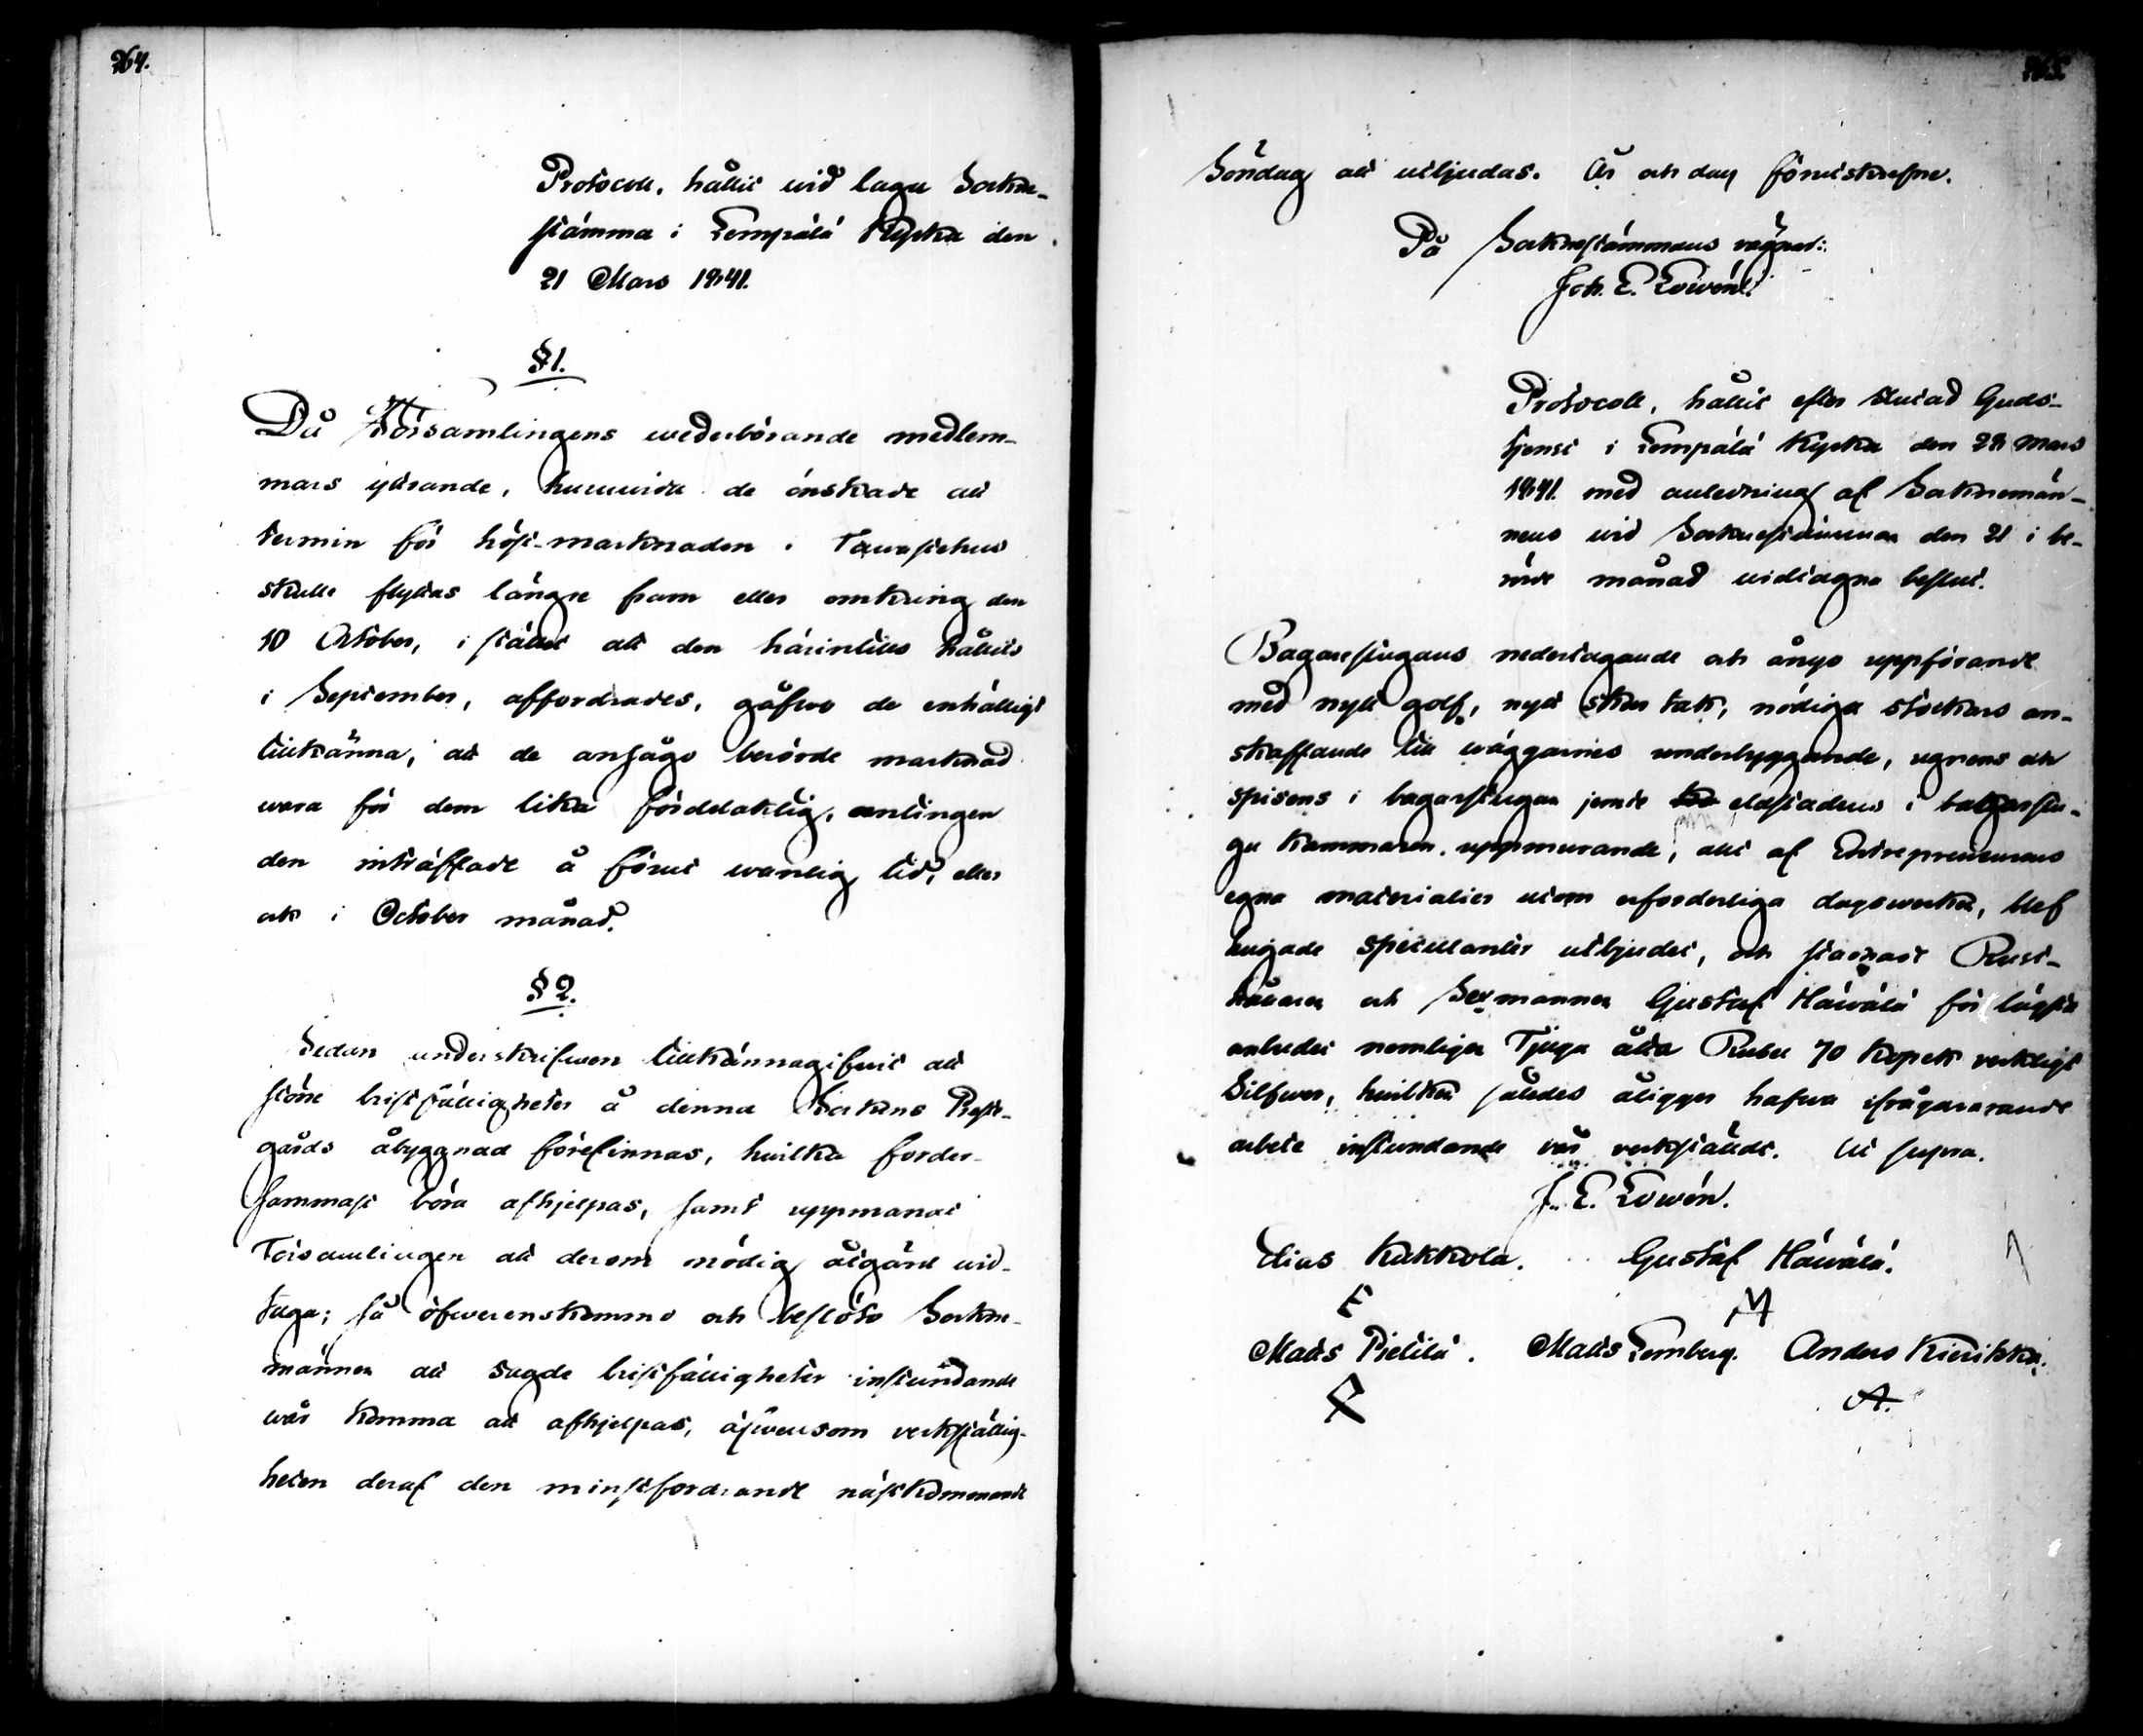 264.
Protocoll, hållit wid laga Sockne-
stämma i Lempälä Kyrka den
21 Mars 1841.
§ 1.
Då Församlingens wederbörande medlem-
mars yttrande, huruwida de önskade att
termin för höst-marknaden i Tawastehus
skulle flyttas längre fram eller omkring den
10 October, i stället att den härintills hållits
i September, affordrades, gåfwo de enhälligt
tillkänna, att de ansågo berörde marknad
wara för dem lika fördelaktig, antingen
den inträffade å förut wanlig tid, eller
ock i October månad.
§ 2.
Sedan underskrifwen tillkännagifwit att
större bristfälligheter å denna Sockens Prest-
gårds åbyggnad förefinnas, hwilka forder-
sammast böra afhjelpas, samt uppmanat
Församlingen att derom nödig åtgärd wid-
taga; så öfwerenskommo och beslöto Sockne-
männen att sagde bristfälligheter instundande
wår komma att afhjelpas, äfwensom verkställig-
heten deraf den minstfordrande nästkommande
265.
Söndag att utbjudas. År och dag förutskrefne.
På Socknestämmans vägnar:
Joh. E. Lowén.
Protocoll, hållit efter slutad Guds-
tjenst i Lempälä Kyrka den 28 Mars
1841 med anledning af Socknemän-
nens wid Socknestämman den 21 i be-
rörde månad widtagne beslut.
Bagarestugans nedertagande och ånyo uppförande
med nytt golf, nytt skur tak, nödiga stockars an-
skaffande till wäggarnes underbyggande, ugnens och
spisens i bagarstugan jemte eldstadens i bakgarstu-
gu kammaren uppmurande, allt af Entrepreneurens
egna materialier utom erforderliga dagswerken, blef
hugade spekulanter utbjudet, och stannade Rust-
hållaren och Sexmannen Gustaf Häiwälä för lägsta
anbudet nemligen Tjugu åtta Rubel 70 Kopek verkligt
Silfwer, hwilken således åligger hafwa ifrågavarande
arbete instundande vår verkstäldt. Ut supra.
J. E. Lowén.
Elias Kukkola. Gustaf Häiwälä.
E M
Matts Pietilä. Matts Lemberg. Anders Kierikka.
A.